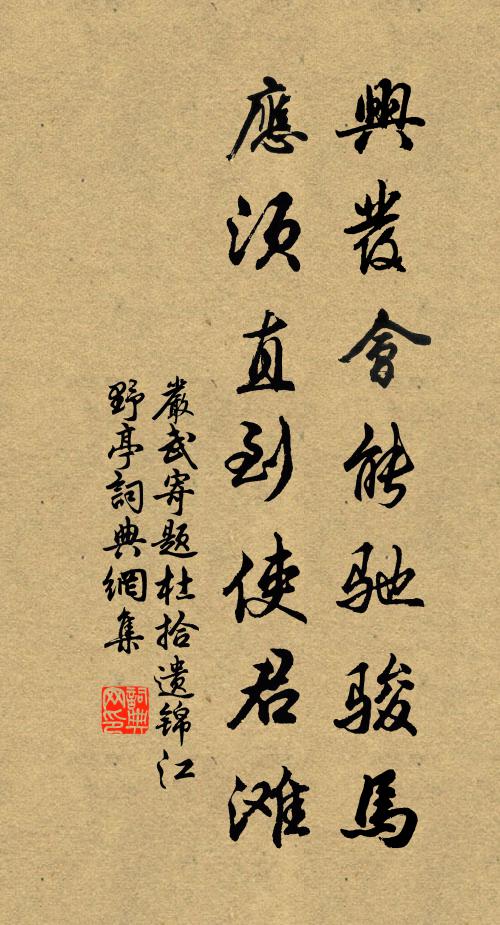 興發會能馳駿馬
應須直到使君灘
嚴武寄題杜拾遺錦江
野亭詞典網集
詞典
网印